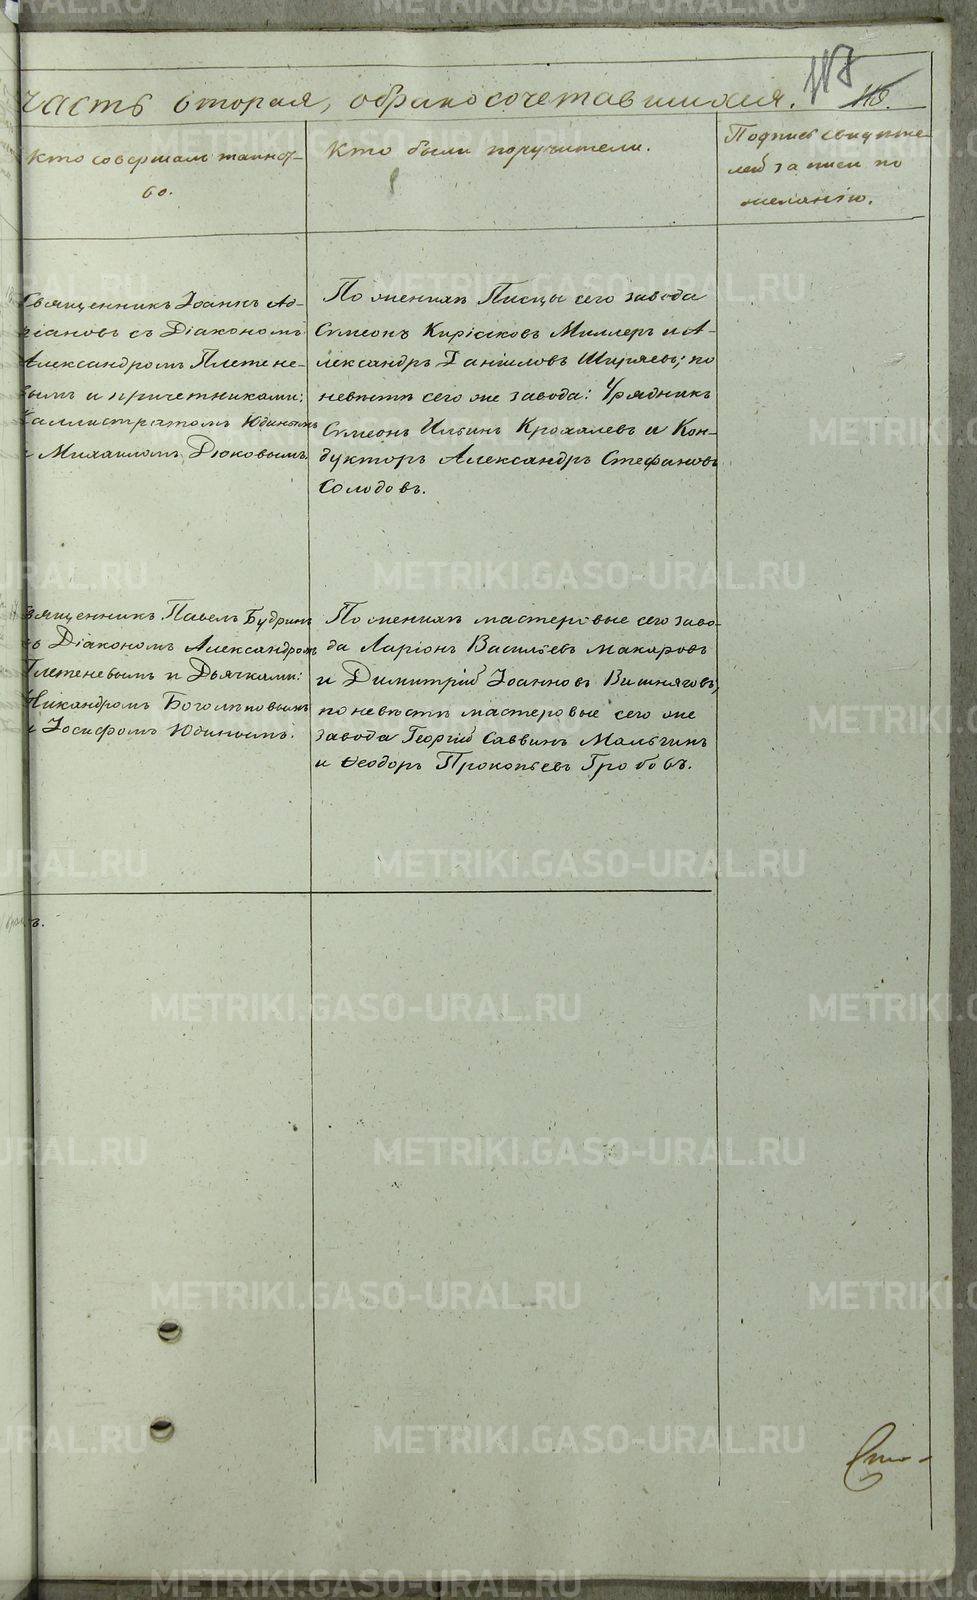 часть вторая, о бракосочетавшихся.
118
115.
Кто совершалъ таинст-
во.
Кто были поручители.
Подпись свидѣте-
лей записи по
желанію.
Священникъ Іоаннъ Ад-
ріановъ съ Діакономъ
Александромъ Плетене-
вымъ и причетниками:
Каллистратомъ Юдинымъ
и Михаиломъ Дюковымъ.
По женихѣ Писцы сего завода
Симеонъ Кириковъ Миллеръ и А-
лександръ Даніиловъ Ширяевъ; по
невѣстѣ сего же завода: Урядникъ
Симеонъ Ильинъ Крохалевъ и Кон-
дукторъ Александръ Стефановъ
Солодовъ.
Священникъ Павелъ Будринъ
съ Діакономъ Александромъ
Плетеневымъ и Дьячками:
Никандромъ Боголѣповымъ
и Іосифомъ Юдинымъ.
По женихѣ мастеровые сего заво-
да Ларіонъ Васильевъ Макаровъ
и Димитрій Іоанновъ Вишняговъ,
по невѣстѣ мастеровые сего же
завода Георгій Саввинъ Мальгинъ
и Ѳеодоръ Прокопьевъ Гробовъ.
METRIKI.GASO-URAL.RU